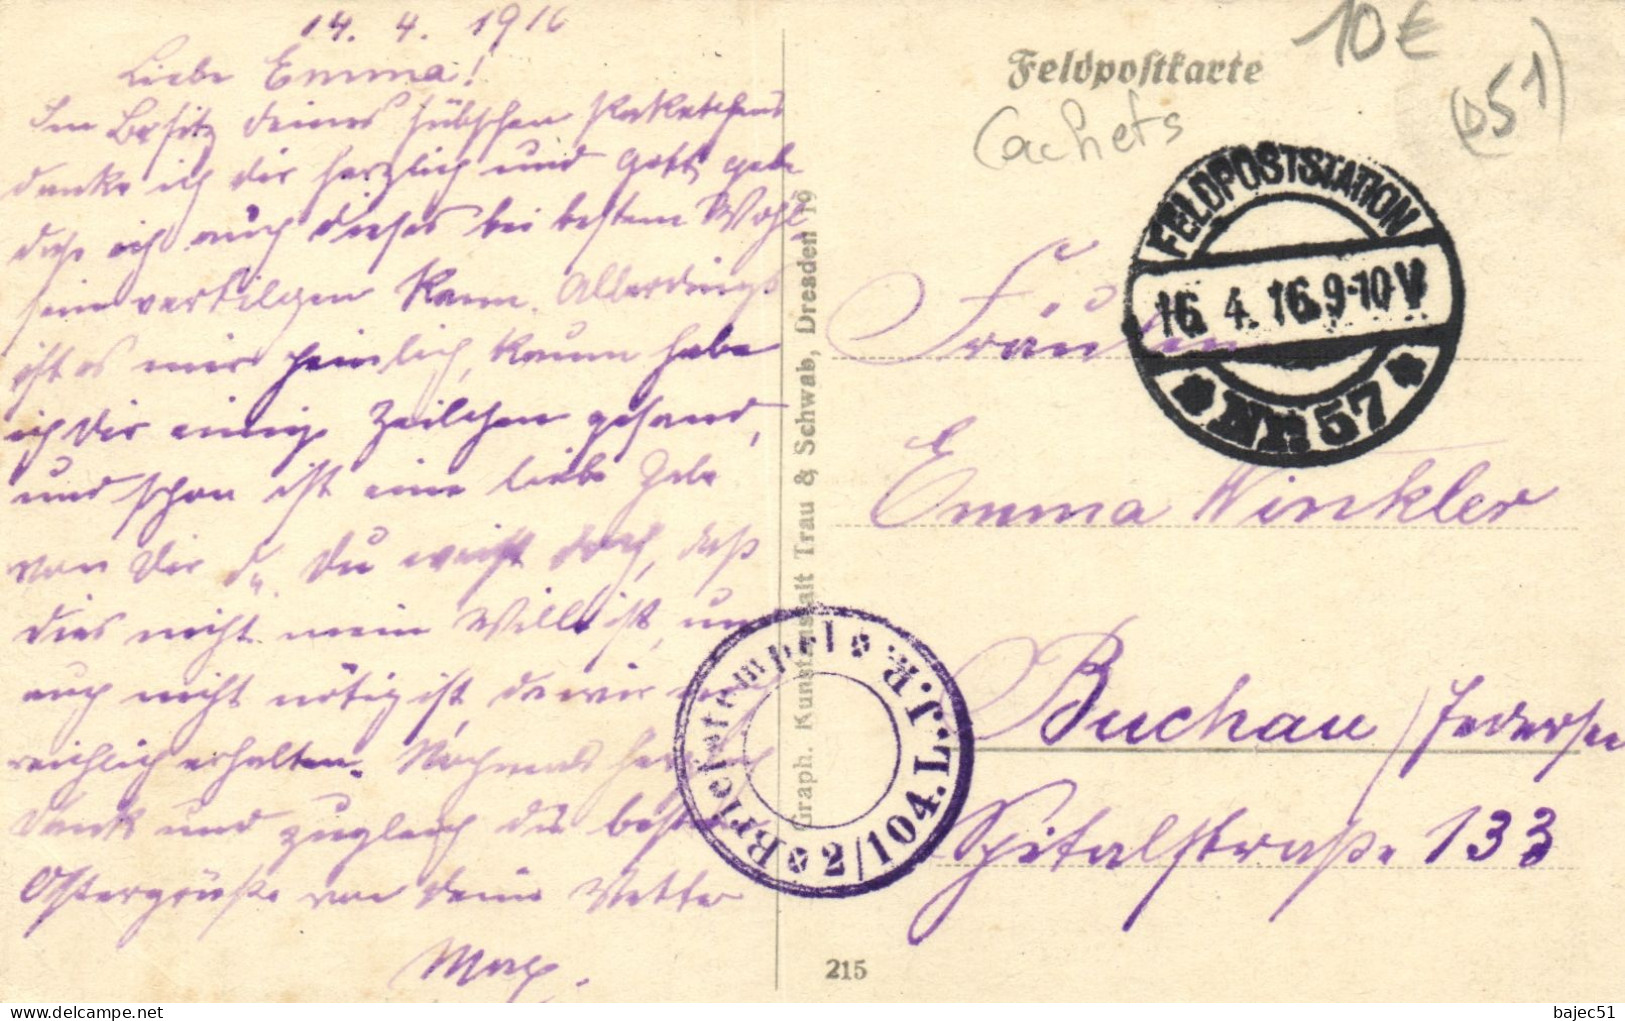 14. 4. 1916
Liebe Emma!
Im Besitz deines hübschen Paketchens
danke ich dir herzlich und Gott gebe
daß ich auch dieses bei bestem Wohl
sein vertilgen kann. Allerdings
ist es mir peinlich, kaum habe
ich dir einige Zeilchen gesand,
und schon ist eine liebe Gabe
von dir d. Du weißt doch, daß
dies nicht mein Wille ist, und
auch nicht nötig ist, da wir
reichlich erhalten. Nochmals herzlich
Dank und zugleich die besten
Ostergrüße von dein Vetter
Max.
Graph. Kunstanstalt Trau & Schwab, Dresden 19
Feldpostkarte
10€
Cachets
(D51)
FELDPOSTSTATION
16. 4. 16. 9-10 V
Nr. 57
Fräulein
Emma Winkler
Buchau / Federsee
Spitalstraße 133
Briefstempel
2/104. L.J.R.
215
delcampe.net
bajec51